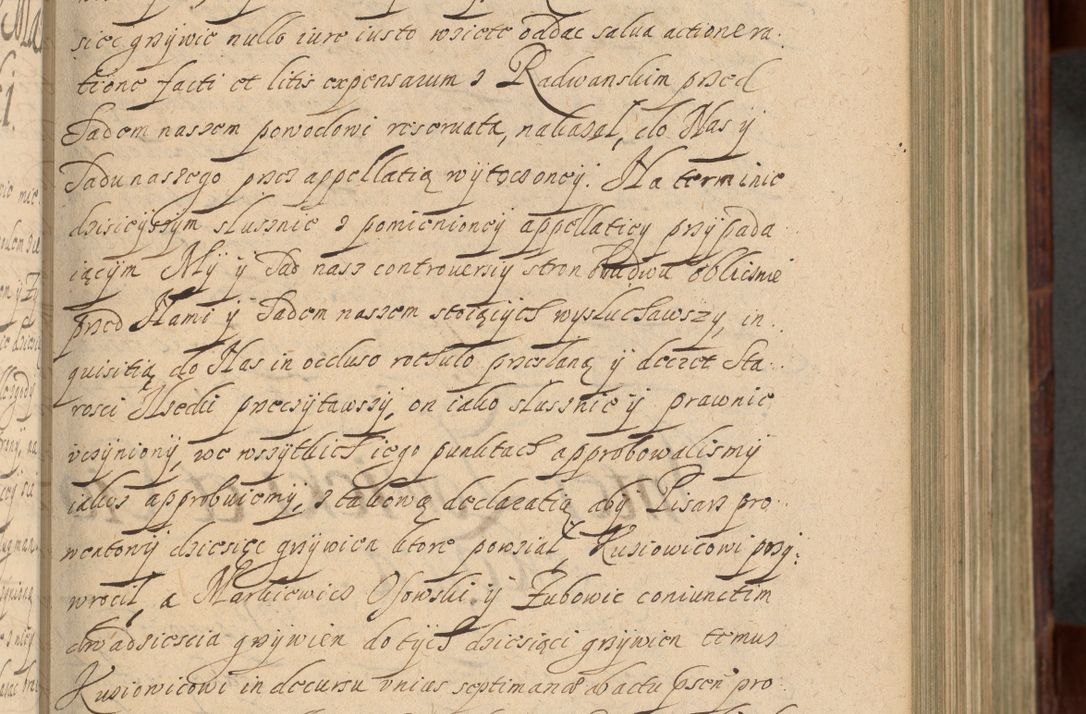 sięć grzywie nullo iure iusto wzięte oddać salua actione ra
tione facti et litis expensarum z Radwanskim przed
Sądem naszem powodowi reseruata, nakazał, do Nas y
Sądu naszego przez appellatią wytoczoney. Na terminie
dzisieyszym słusznie z pomienioney appellatiey przypada
iącym My y Sąd nasz controuersiy stron obudwu oblicznie
przed Nami y Sądem naszem stoiących wysłuchawszy, in
quisitią do Nas in occluso rotulo przesłaną y decret Sta
rosci Usedki przeczytawszy, on iako słusznie y prawnie
vczyniony, we wszytkich iego punktach approbowalismy
iakosz approbuiemy, z takową declaratią aby Pisarz pro
wentowy dziesięc grzywien ktore powziął, Kuziowicowi przy
wrocił, a Markiewicz Osowski y Zubowic coniunctim
dwadziescia grzywien do tych dziesiąci grzywien temuz
Kuziowicowi in decursu vnius septimanae ab actu psen pro